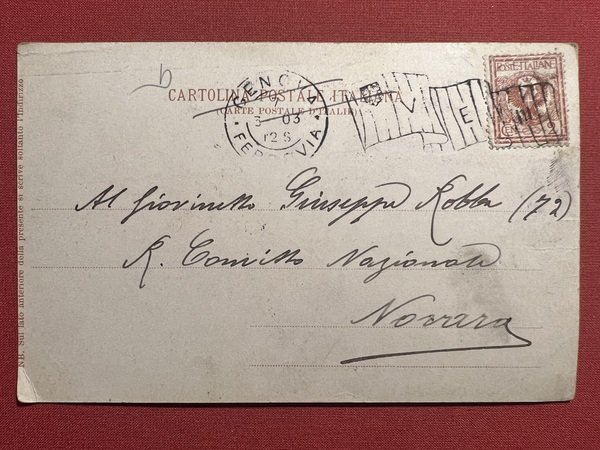 POSTE ITALIANE
CARTOLINA POSTALE ITALIANA
(CARTE POSTALE D'ITALIE)
GENOVA
3 - 03
12 S
FERROVIA
V E III
Al Giovinetto Giuseppe Robba (72)
R. Convitto Nazionale
Novara
NB. Sul lato anteriore della presente si scrive soltanto l'indirizzo